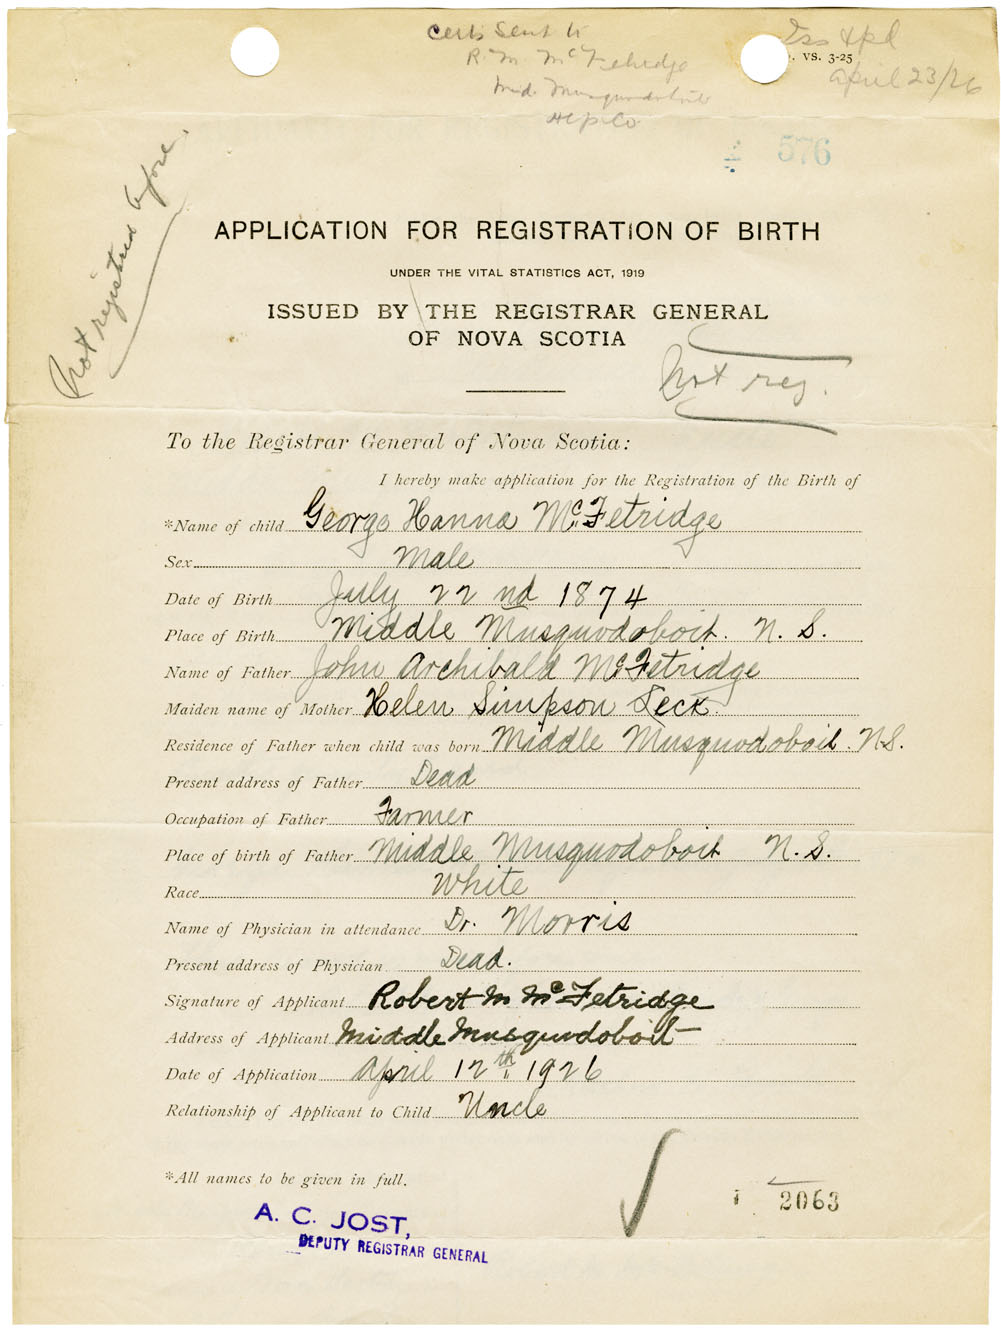 Certs Sent to
R. M. McFetridge
Mid. Musquodoboit
Hfx Co
VS. 3-25
April 23/26
576
Not registered before
APPLICATION FOR REGISTRATION OF BIRTH
UNDER THE VITAL STATISTICS ACT, 1919
ISSUED BY THE REGISTRAR GENERAL
OF NOVA SCOTIA
Not reg.
To the Registrar General of Nova Scotia:
I hereby make application for the Registration of the Birth of
*Name of child George Hanna McFetridge
Sex Male
Date of Birth July 22nd 1874
Place of Birth Middle Musquodoboit. N. S.
Name of Father John Archibald McFetridge
Maiden name of Mother Helen Simpson Leck.
Residence of Father when child was born Middle Musquodoboit. N.S.
Present address of Father Dead
Occupation of Father Farmer
Place of birth of Father Middle Musquodoboit N. S.
Race White
Name of Physician in attendance Dr. Morris
Present address of Physician Dead.
Signature of Applicant Robert M McFetridge
Address of Applicant Middle Musquodoboit
Date of Application April 12th 1926
Relationship of Applicant to Child Uncle
*All names to be given in full.
2063
A. C. JOST,
DEPUTY REGISTRAR GENERAL